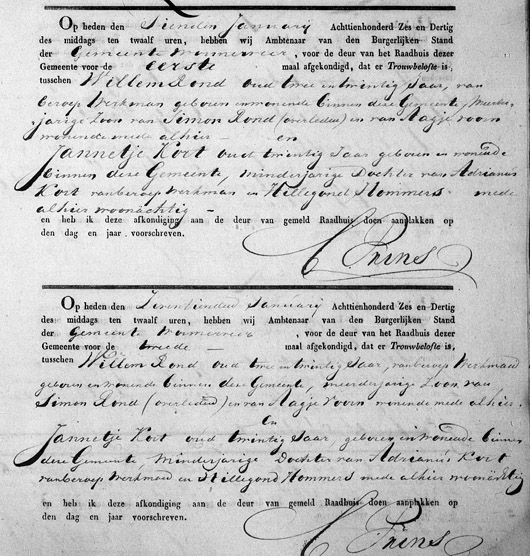 Op heden den Tienden January Achttienhonderd Zes en Dertig
des middags ten twaalf uren, hebben wij Ambtenaar van den Burgerlijken Stand
der Gemeente Wormerveer, voor de deur van het Raadhuis dezer
Gemeente voor de eerste maal afgekondigd, dat er Trouwbelofte is,
tusschen Willem Rond oud twee en twintig Jaar, van
beroep Werkman geboren en wonende binnen deze Gemeente, Meerder-
jarige Zoon van Simon Rond (overleden) en van Aagje Voorn
wonende mede alhier - en
Jannetje Kort oud twintig Jaar geboren en wonende
binnen deze Gemeente, minderjarige Dochter van Adrianus
Kort van beroep Werkman en Hillegond Hommers mede
alhier woonachtig -
en heb ik deze afkondiging aan de deur van gemeld Raadhuis doen aanplakken op
den dag en jaar voorschreven.
Prins
Op heden den Zeventienden January Achttienhonderd Zes en Dertig
des middags ten twaalf uren, hebben wij Ambtenaar van den Burgerlijken Stand
der Gemeente Wormerveer, voor de deur van het Raadhuis dezer
Gemeente voor de tweede - maal afgekondigd, dat er Trouwbelofte is,
tusschen Willem Rond oud twee en twintig Jaar, van beroep Werkman
geboren en wonende binnen deze Gemeente, meerderjarige Zoon van
Simon Rond (overleden) en van Aagje Voorn wonende mede alhier.
En
Jannetje Kort oud twintig Jaar geboren en wonende binnen
deze Gemeente, Minderjarige Dochter van Adrianus Kort
van beroep Werkman en Hillegond Hommers mede alhier woonachtig
en heb ik deze afkondiging aan de deur van gemeld Raadhuis doen aanplakken op
den dag en jaar voorschreven.
Prins